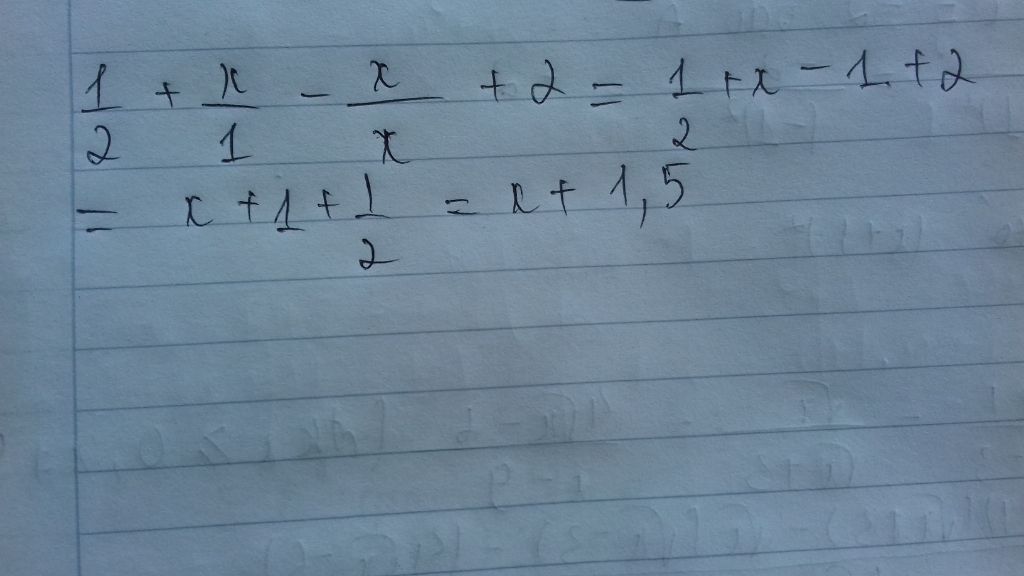 1/2 + x/1 - x/x + 2 = 1/2 + x - 1 + 2
= x + 1 + 1/2 = x + 1,5